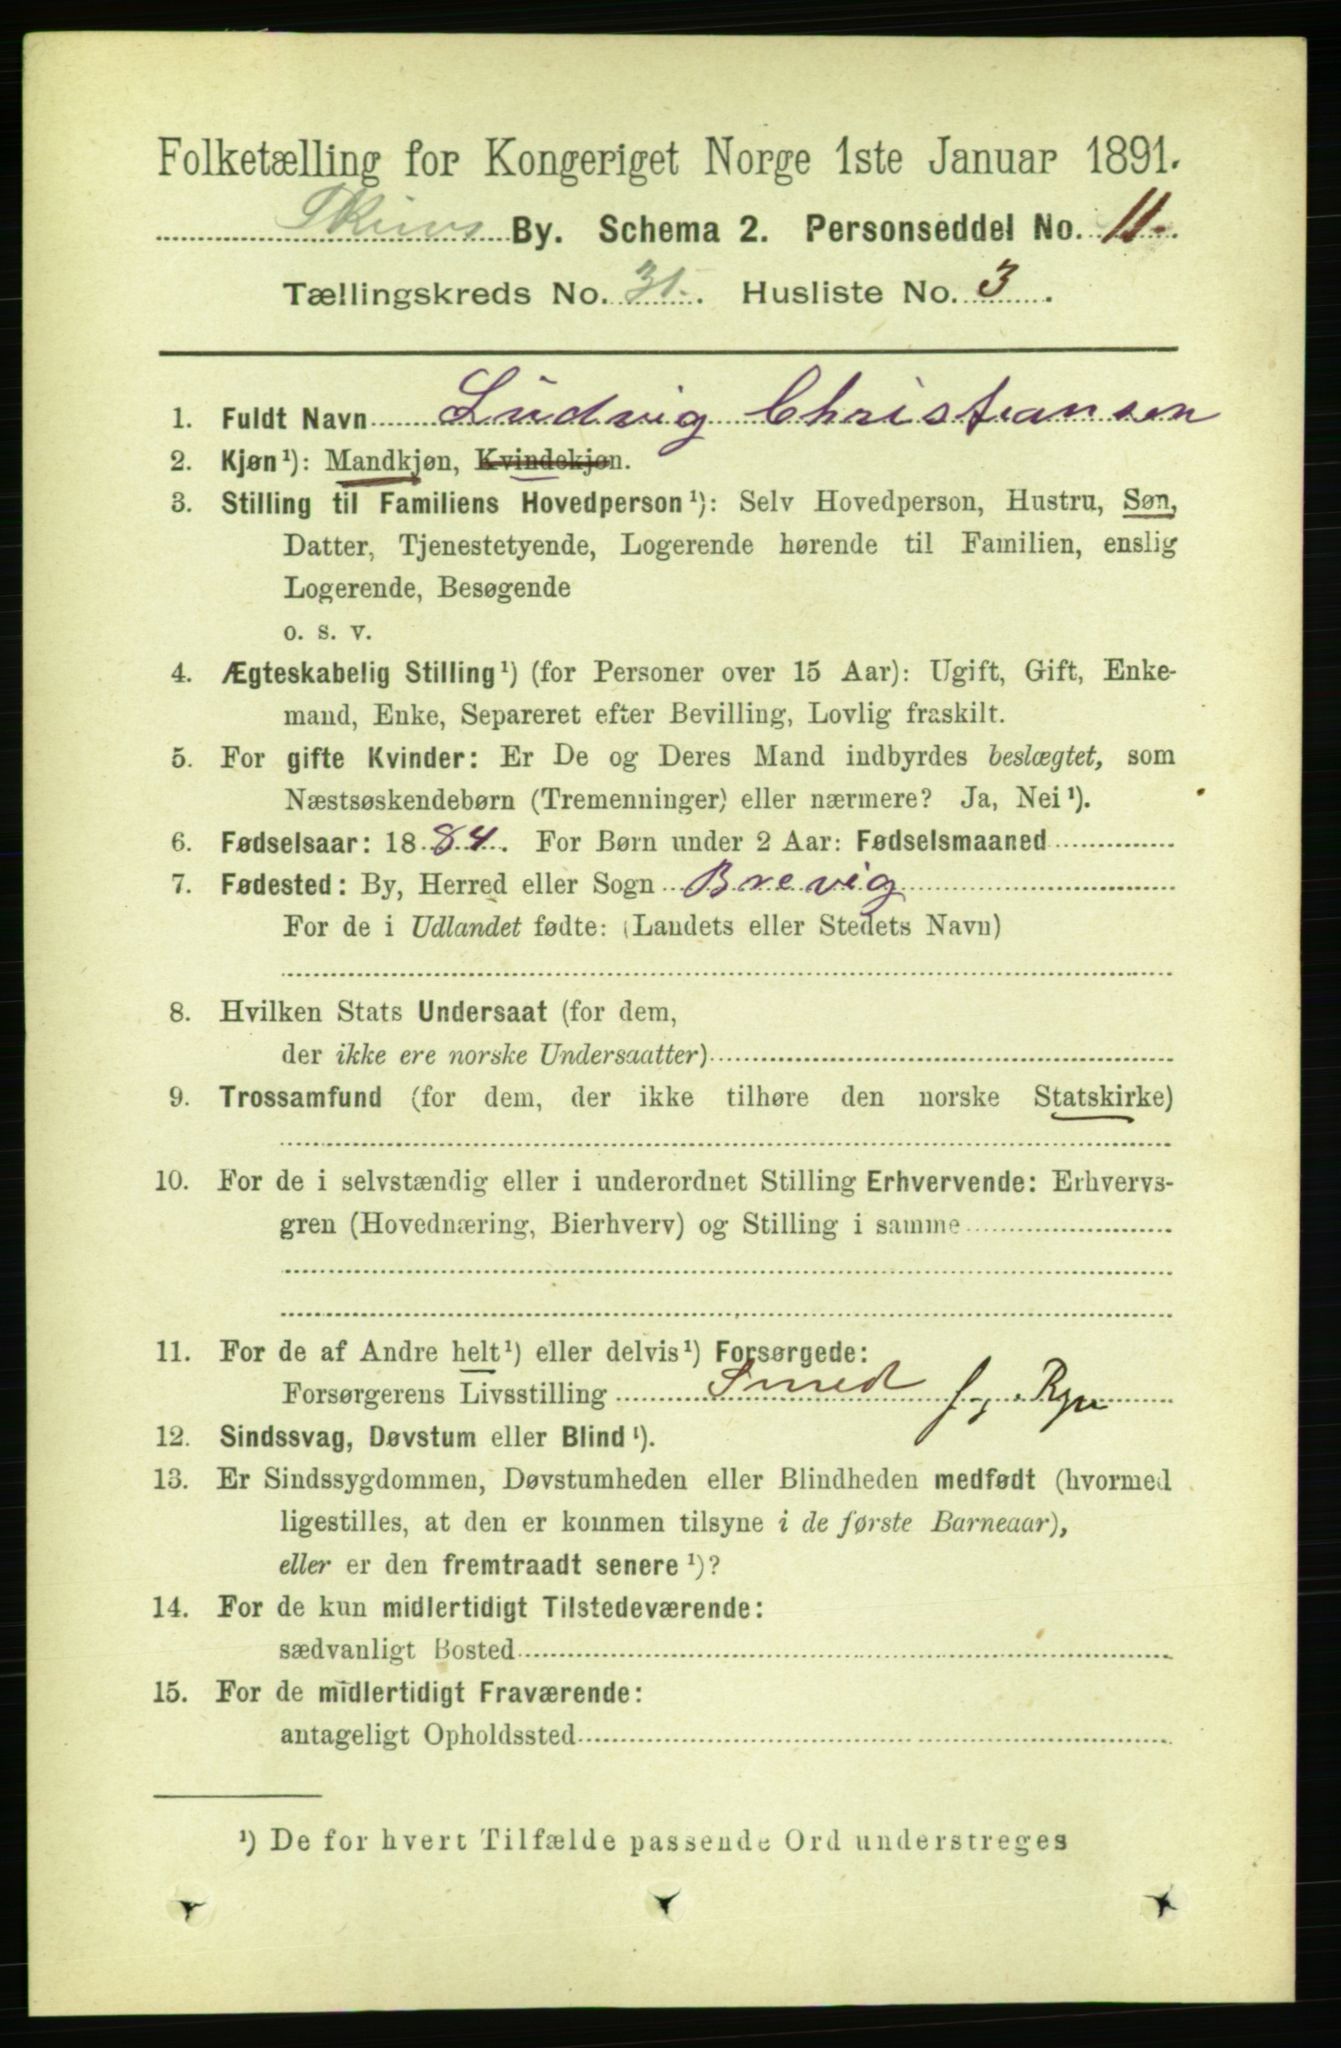 Folketælling for Kongeriget Norge 1ste Januar 1891.
Skiens By. Schema 2. Personseddel No. 11.
Tællingskreds No. 31. Husliste No. 3.
1. Fuldt Navn Ludvig Christiansen
2. Kjøn¹): Mandkjøn, Kvindekjøn.
3. Stilling til Familiens Hovedperson¹): Selv Hovedperson, Hustru, Søn,
Datter, Tjenestetyende, Logerende hørende til Familien, enslig
Logerende, Besøgende
o. s. v.
4. Ægteskabelig Stilling¹) (for Personer over 15 Aar): Ugift, Gift, Enke-
mand, Enke, Separeret efter Bevilling, Lovlig fraskilt.
5. For gifte Kvinder: Er De og Deres Mand indbyrdes beslægtet, som
Næstsøskendebørn (Tremenninger) eller nærmere? Ja, Nei¹).
6. Fødselsaar: 1884. For Børn under 2 Aar: Fødselsmaaned
7. Fødested: By, Herred eller Sogn Brevig
For de i Udlandet fødte: (Landets eller Stedets Navn)
8. Hvilken Stats Undersaat (for dem,
der ikke ere norske Undersaatter)
9. Trossamfund (for dem, der ikke tilhøre den norske Statskirke)
10. For de i selvstændig eller i underordnet Stilling Erhvervende: Erhvervs-
gren (Hovednæring, Bierhverv) og Stilling i samme
11. For de af Andre helt¹) eller delvis¹) Forsørgede:
Forsørgerens Livsstilling Smed
12. Sindssvag, Døvstum eller Blind¹).
13. Er Sindssygdommen, Døvstumheden eller Blindheden medfødt (hvormed
ligestilles, at den er kommen tilsyne i de første Barneaar),
eller er den fremtraadt senere¹)?
14. For de kun midlertidigt Tilstedeværende:
sædvanligt Bosted
15. For de midlertidigt Fraværende:
antageligt Opholdssted
¹) De for hvert Tilfælde passende Ord understreges